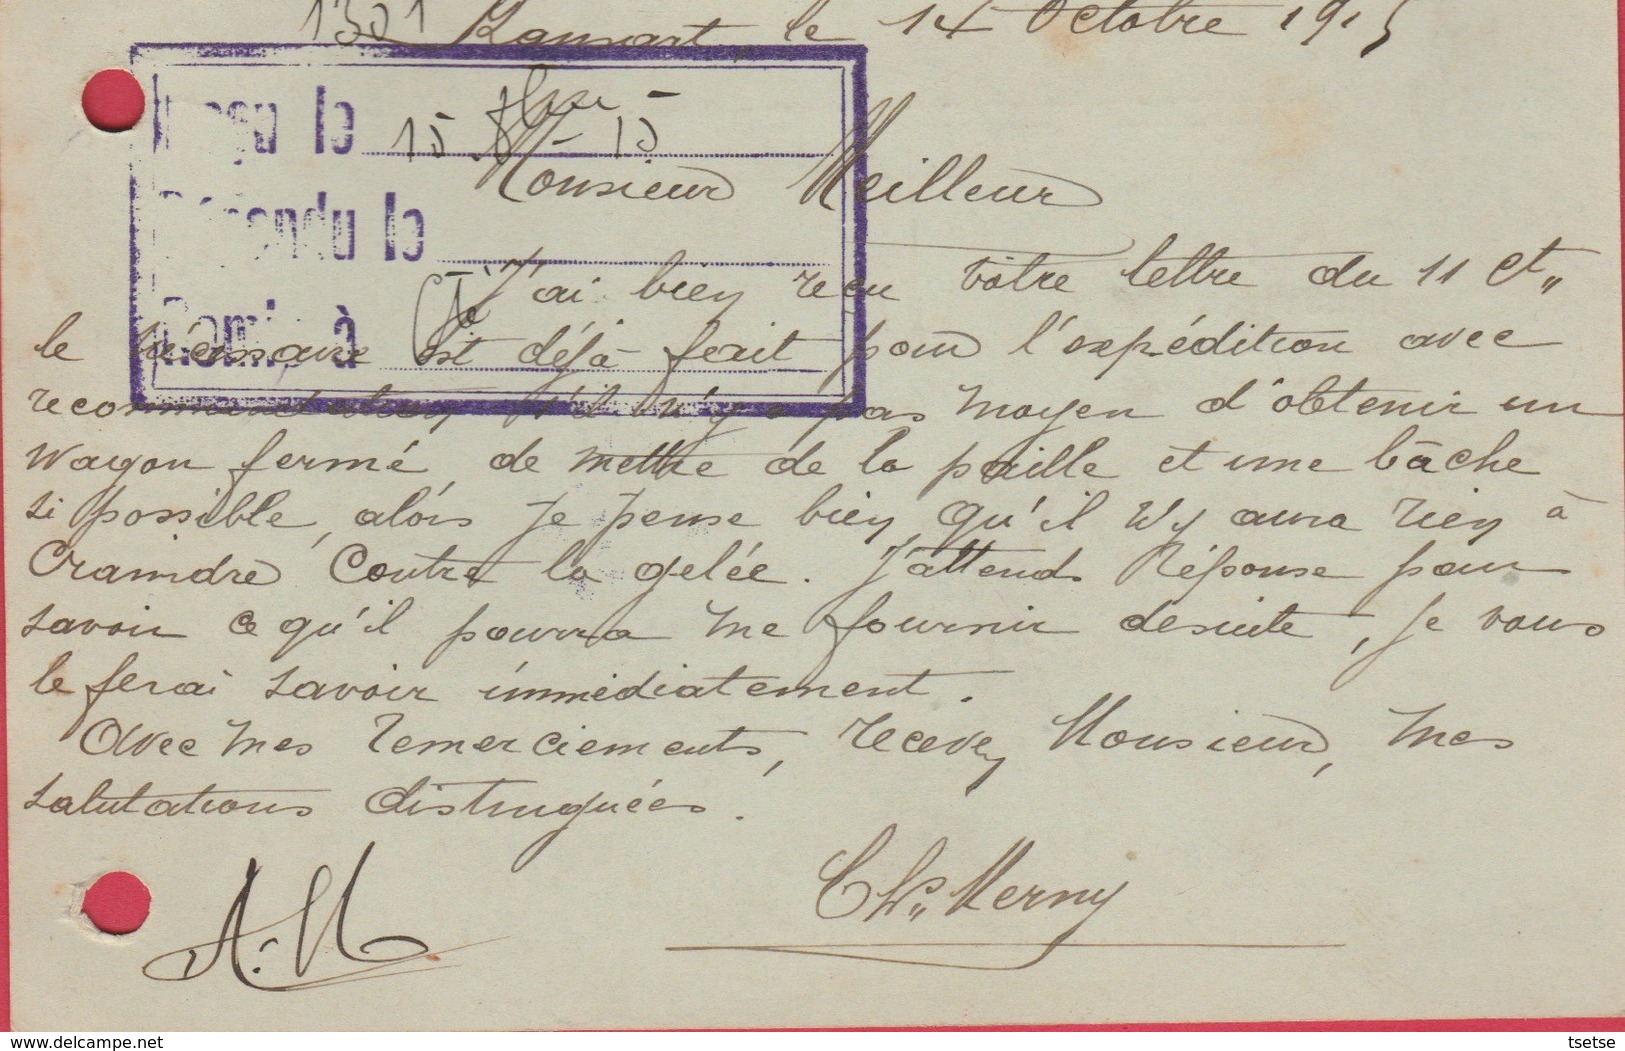 1301 Ransart, le 14 Octobre 1915
Reçu le 15 - 15
Monsieur Meilleur
Répondu le
J'ai bien reçu vôtre lettre du 11 Ct,,
Remis à
le nécessaire est déjà fait pour l'expédition avec
recommandation s'il n'y a pas moyen d'obtenir un
wagon fermé, de mettre de la paille et une bâche
si possible, alors je pense bien qu'il n'y aura rien à
Craindre Contre la gelée. J'attends Réponse pour
savoir ce qu'il pourra me fournir desuite, je vous
le ferai savoir immédiatement.
Avec mes remerciements, recevez Monsieur, mes
salutations distinguées.
Ch,, Merny
delcampe.net
tsetse